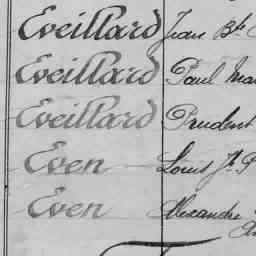 Eveillard Jean Bte
Eveillard Paul Mar
Eveillard Prudent
Even Louis Jh P
Even Alexandre